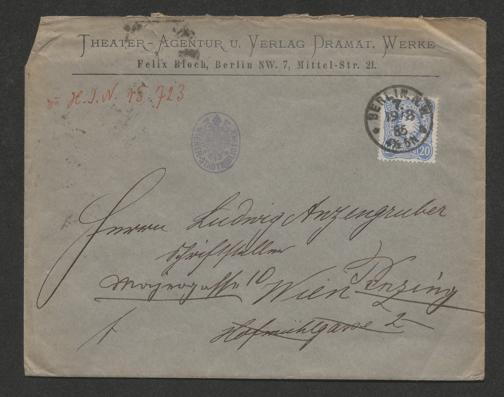 THEATER-AGENTUR U. VERLAG DRAMAT. WERKE
Felix Bloch, Berlin NW. 7, Mittel-Str. 21.
H.I.N. 15.723
BERLIN N.W.
7.
19/8
85
20
Herrn Ludwig Anzengruber
Schriftsteller
10
Wien Penzing
Hofmühlgasse 2